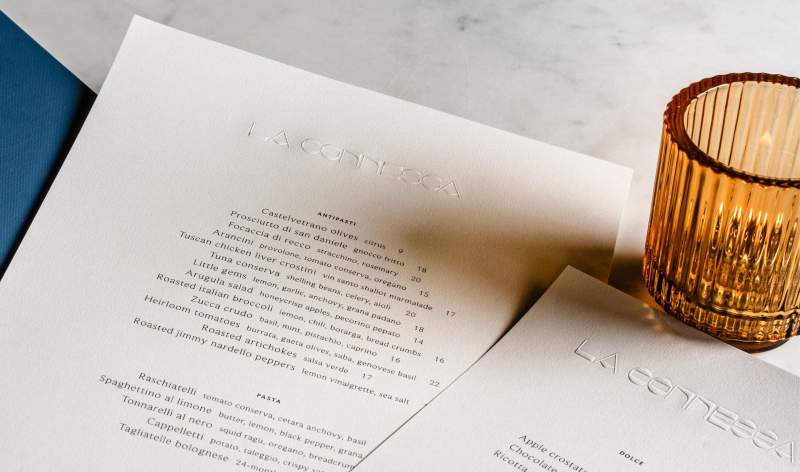 LA CONNESSA
ANTIPASTI
Castelvetrano olives citrus 9
Prosciutto di san daniele gnocco fritto 18
Focaccia di recco stracchino, rosemary 20
Arancini provolone, tomato conserva, oregano 15
Tuscan chicken liver crostini vin santo shallot marmalade 17
Tuna conserva shelling beans, celery, aioli 20
Little gems lemon, garlic, anchovy, grana padano 18
Arugula salad honeycrisp apples, pecorino pepato 14
Roasted italian broccoli lemon, chili, botarga, bread crumbs 16
Zucca crudo basil, mint, pistachio, caprino 16
Heirloom tomatoes burrata, gaeta olives, saba, genovese basil 22
Roasted artichokes salsa verde 17
Roasted jimmy nardello peppers lemon vinaigrette, sea salt
PASTA
Raschiatelli tomato conserva, cetara anchovy, basil
Spaghettino al limone butter, lemon, black pepper, grana
Tonnarelli al nero squid ragù, oregano, breadcrum
Cappelletti potato, taleggio, crispy
Tagliatelle bolognese 24-mon
LA CONNESSA
DOLCE
Apple crostata
Chocolate
Ricotta